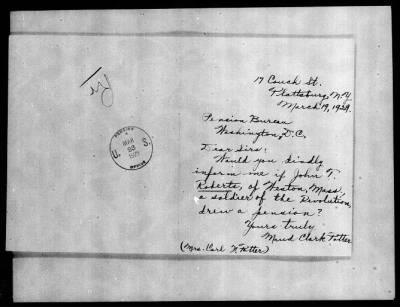 17 Couch St.
Plattsburg, N.Y.
March 19, 1929.
Pension Bureau
Washington, D.C.
Dear Sirs:
Would you kindly
inform me if John T.
Roberts, of Weston, Mass.
a soldier of the Revolution,
drew a pension?
Yours truly
Maud Clark Potter
(Mrs. Carl H. Potter)
PENSION
U. S.
MAR
OFFICE